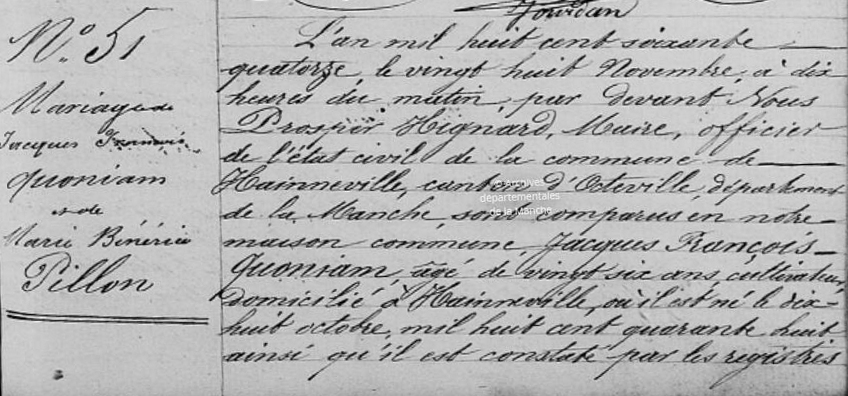 Jourdan
N.° 51
Mariage de
Jacques François
Quoniam
et de
Marie Bénérice
Pillon
L'an mil huit cent soixante
quatorze, le vingt huit Novembre, à dix
heures du matin, par devant Nous
Prosper Hignard, Maire, officier
de l'état civil de la commune de
Hainneville, canton d'Octeville, département
de la Manche, sont comparus en notre
maison commune, Jacques François
Quoniam, agé de vingt six ans, cultivateur,
domicilié à Hainneville, où il est né le dix-
huit octobre, mil huit cent quarante huit
ainsi qu'il est constaté par les registres
© Archives
départementales
de la Manche